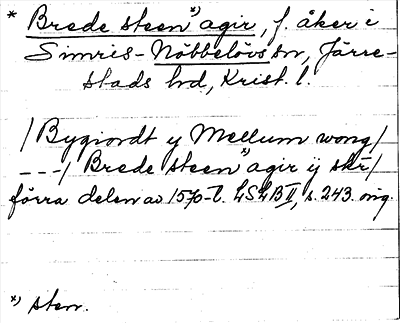 * Brede steen *) agir, f. åker i
Simris-Nöbbelövs sn, Järre-
stads hd, Krist. l.
/ Bygiordt y Mellum wong /
---/ Brede steen *) agir ij skr /
förra delen av 1570-t. LSLB II, s. 243. orig.
*) sten.